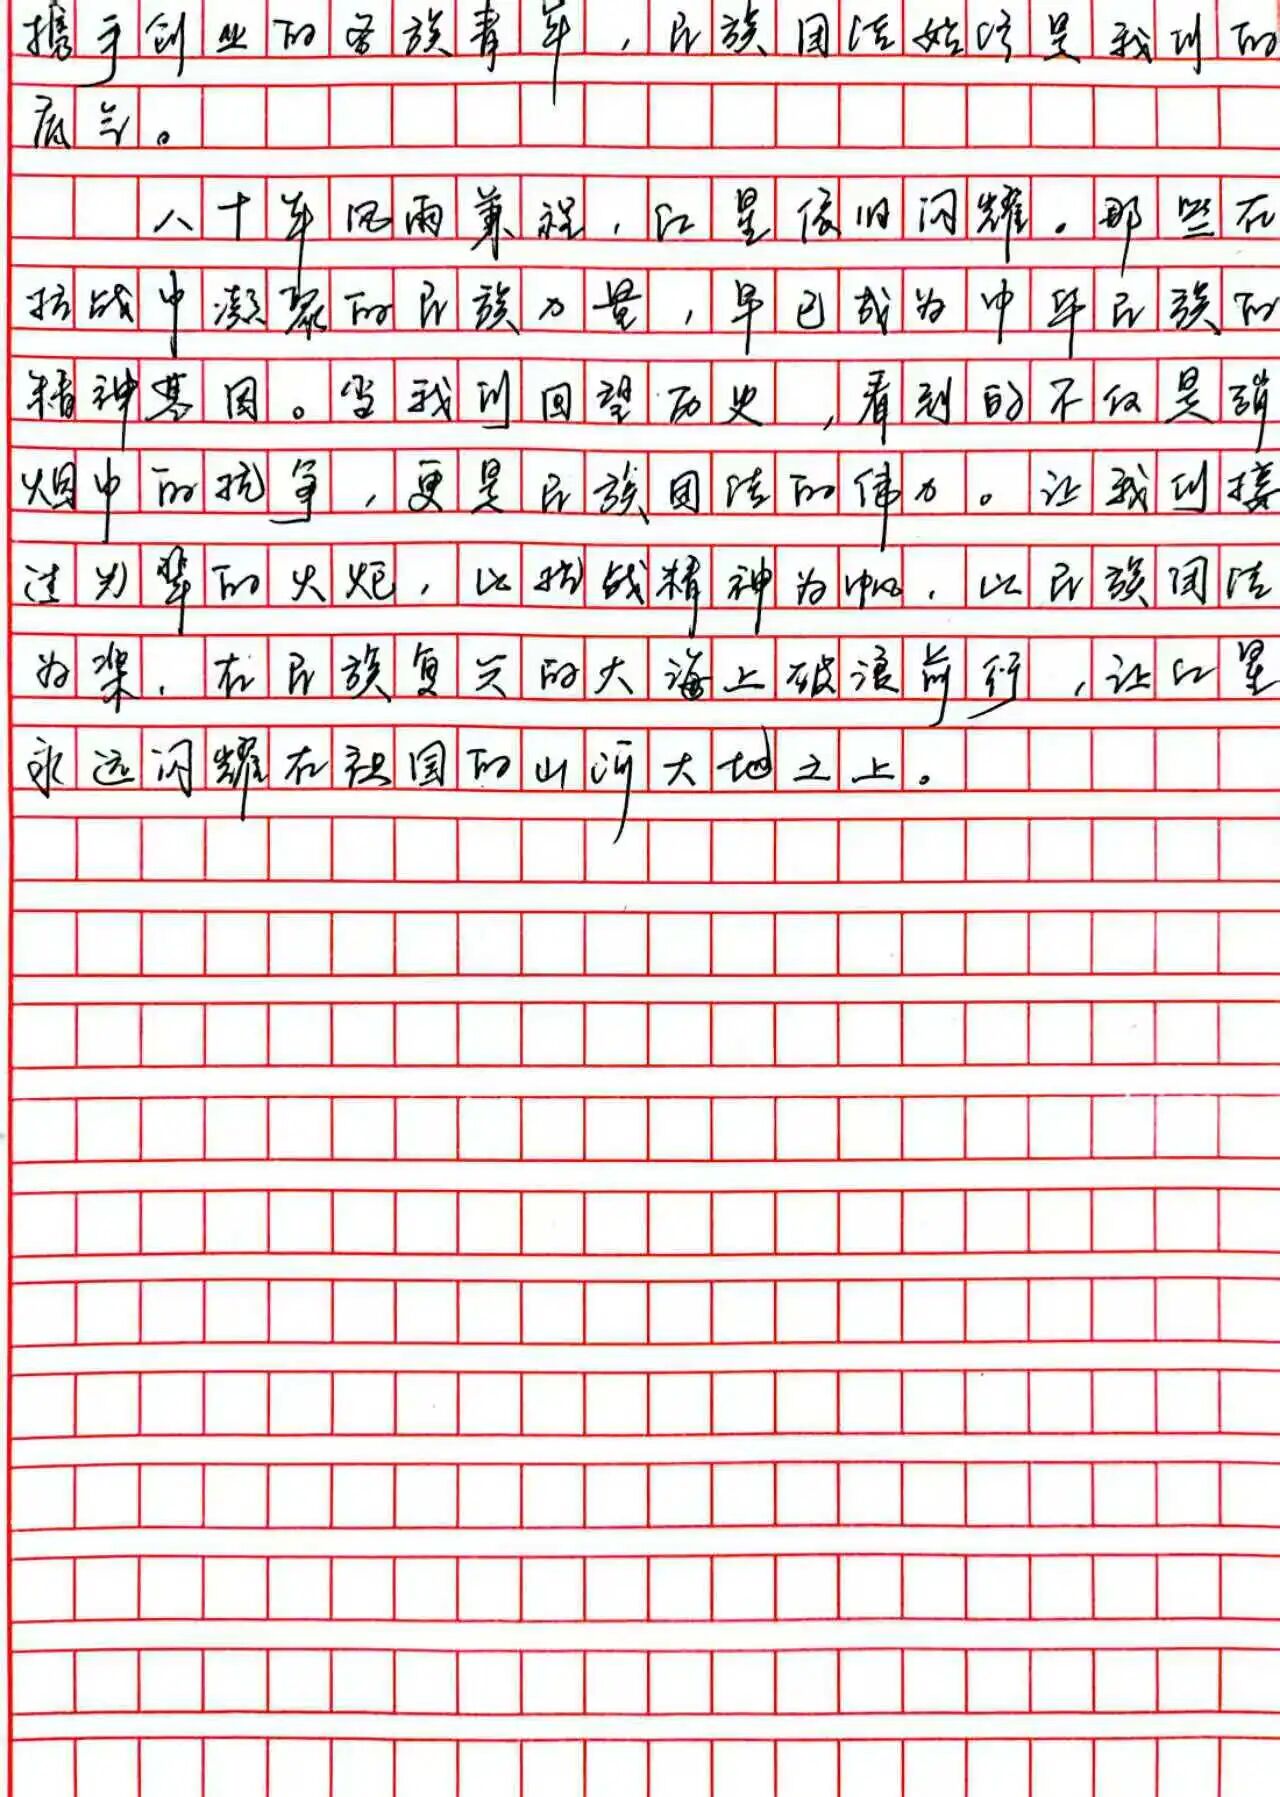 携手创业的各族青年，民族团结始终是我们的
底气。
八十年风雨兼程，红星依旧闪耀。那些在
抗战中凝聚的民族力量，早已成为中华民族的
精神基因。当我们回望历史，看到的不仅是硝
烟中的抗争，更是民族团结的伟力。让我们接
过先辈的火炬，以抗战精神为帆，以民族团结
为桨，在民族复兴的大海上破浪前行，让红星
永远闪耀在祖国的山河大地之上。